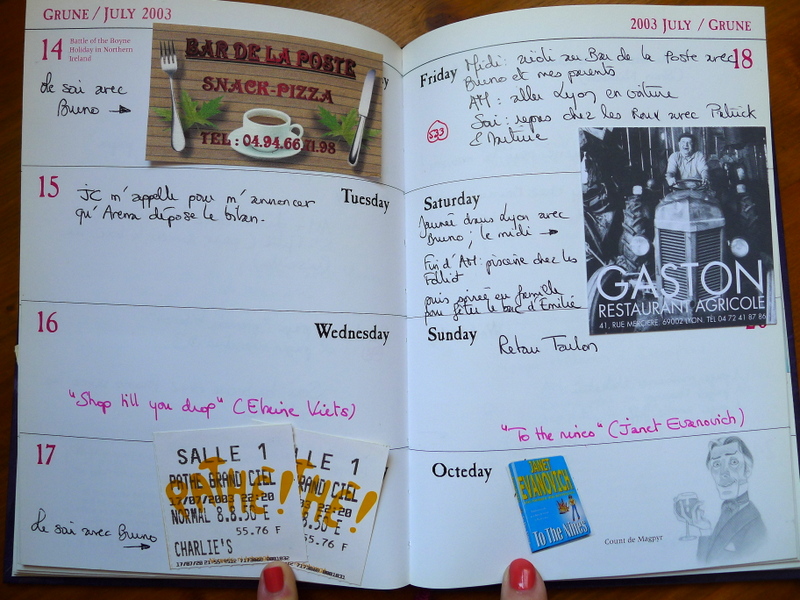 GRUNE / JULY 2003
14
Battle of the Boyne
Holiday in Northern
Ireland
Le soir avec
Bruno →
BAR DE LA POSTE
SNACK-PIZZA
TEL : 04.94.66.71.98
15
Tuesday
JC m'appelle pour m'annoncer
qu'Arena dépose le bilan.
16
Wednesday
"Shop till you drop" (Elaine Viets)
17
Le soir avec Bruno
→
SALLE 1
PATHE GRAND CIEL
17/07/2003 22:20
NORMAL 8.8.50 E
55.76 F
CHARLIE'S
PATHE!
LE 1
GRAND CIEL
2003 22:20
.50 E
55.76 F
THE!
2003 JULY / GRUNE
Friday
18
Midi : midi au Bar de la Poste avec
Bruno et mes parents
AM : aller Lyon en voiture
Soir : repas chez les Roux avec Patrick
523
Saturday
Journée dans Lyon avec
Bruno ; le midi →
Fin d'AM : piscine chez les
Folliot
puis soirée en famille
pour fêter le bac d'Emilie
GASTON
RESTAURANT AGRICOLE
41, RUE MERCIERE. 69002 LYON. TEL 04 72 41 87 86
Sunday
Retour Toulon
"To the nines" (Janet Evanovich)
Octeday
JANET
EVANOVICH
To The Nines
Count de Magpyr